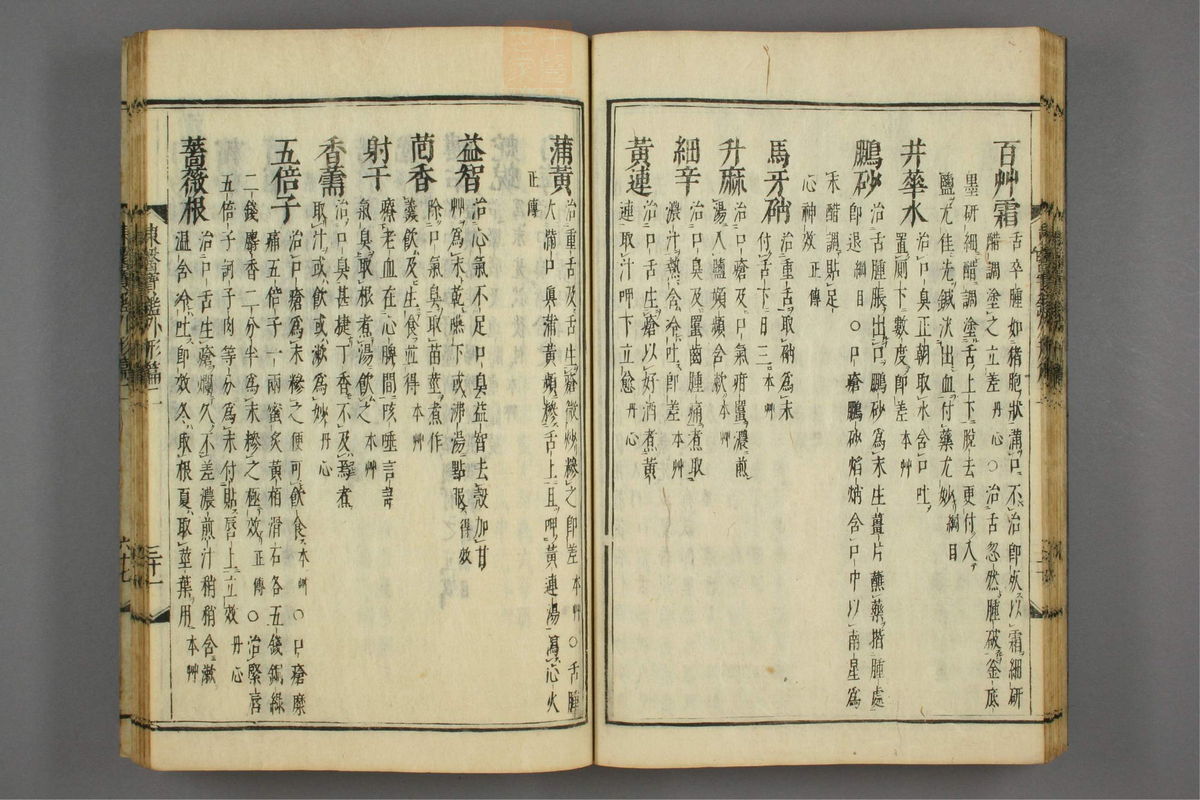 百艸霜
舌卒腫如猪胞狀滿口不治即死以霜細研
醋調塗之立差丹心○治舌忽然腫破釜底
墨研細醋調塗舌上下脫去更付入
鹽尤佳先鍼決出血付藥尤妙綱目
井華水
治口臭正朝取水含口吐
置厠下數度即差本艸
鵬砂
治舌腫脹出口鵬砂爲末生薑片蘸藥揩腫處
即退綱目○口瘡鵬砂焰焇含口中以南星爲
末醋調貼足
心神效正傳
馬牙硝
治重舌取硝爲末
付舌下日三本艸
升麻
治口瘡及口氣疳䘌濃煎
湯入鹽頻頻含漱本艸
細辛
治口臭及䘌齒腫痛煮取
濃汁熱含冷吐即差本艸
黃連
治口舌生瘡以好酒煮黃
連取汁呷下立愈丹心
蒲黃
治重舌及舌生瘡微炒糝之即差本艸○舌腫
大滿口眞蒲黃頻糝舌上且呷黃連湯瀉心火
正傳
益智
治心氣不足口臭益智去殼加甘
艸爲末乾嚥下或沸湯點服得效
茴香
除口氣臭取苗莖煮作
羹飮及生食並得本艸
射干
療老血在心脾間咳唾言語
氣臭取根煮湯飮之本艸
香薷
治口臭甚捷丁香不及焉煮
取汁或飮或漱爲妙丹心
五倍子
治口瘡爲末糝之便可飮食本艸○口瘡糜
痛五倍子一兩蜜灸黃栢滑石各五錢銅綠
二錢麝香二分半爲末糝之極效正傳○治緊唇
五倍子訶子肉等分爲末付貼唇上立效丹心
薔薇根
治口舌生瘡爛久不差濃煎汁稍稍含漱
温含冷吐即效冬取根夏取莖葉用本艸
東醫寶鑑外形篇二
三十一